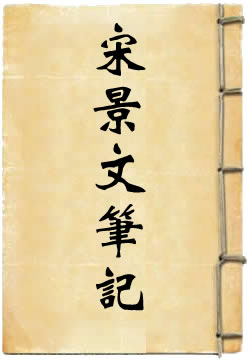 宋景文筆記